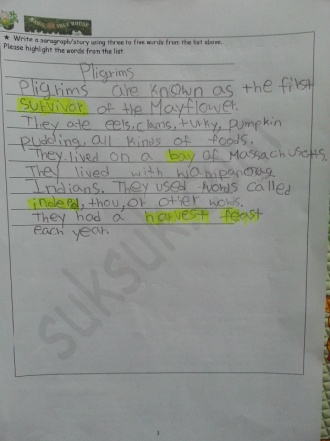 MAGIC TREE HOUSE
★ Write a paragraph/story using three to five words from the list above.
Please highlight the words from the list.
Pligrims
Pligrims are known as the first
survivor of the Mayflower.
They ate eels, clams, turky, pumpkin
pudding, all kinds of foods.
They lived on a bay of Massachusetts.
They lived with wampanoag
Indians. They used words called
indeed, thou, or other words.
They had a harvest feast
each year.
suksuk
3